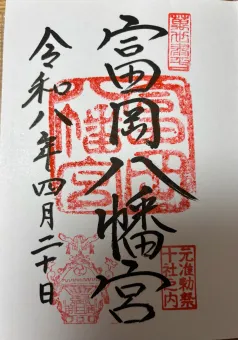 富岡八幡宮
令和八年四月二十日
元准勅祭
十社之内